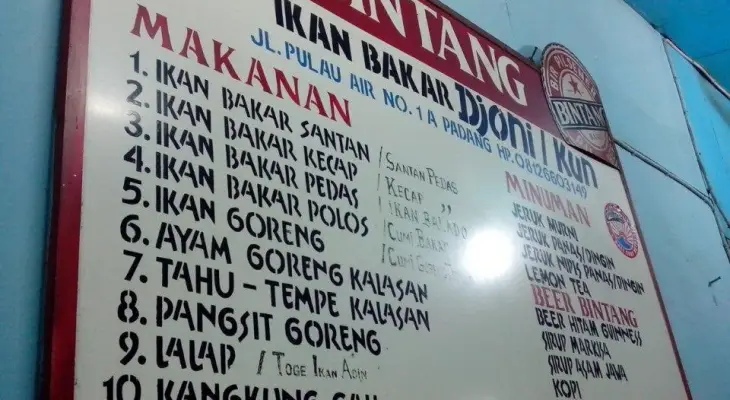 BINTANG
IKAN BAKAR Djoni / Kun
JL. PULAU AIR NO. 1A PADANG HP. 08126603149
BIR PILSENER
BINTANG
MAKANAN
1. IKAN BAKAR SANTAN / SANTAN PEDAS
2. IKAN BAKAR KECAP / KECAP "
3. IKAN BAKAR PEDAS / IKAN BALADO
4. IKAN BAKAR POLOS / CUMI BAKAR
5. IKAN GORENG / CUMI
6. AYAM GORENG KALASAN
7. TAHU - TEMPE KALASAN
8. PANGSIT GORENG
9. LALAP / TOGE IKAN ASIN
10. KANGKUNG
MINUMAN
JERUK MURNI
JERUK PANAS/DINGIN
JERUK NIPIS PANAS/DINGIN
LEMON TEA
BEER BINTANG
BEER HITAM GUINNESS
SIRUP MARKISA
SIRUP ASAM JAWA
KOPI